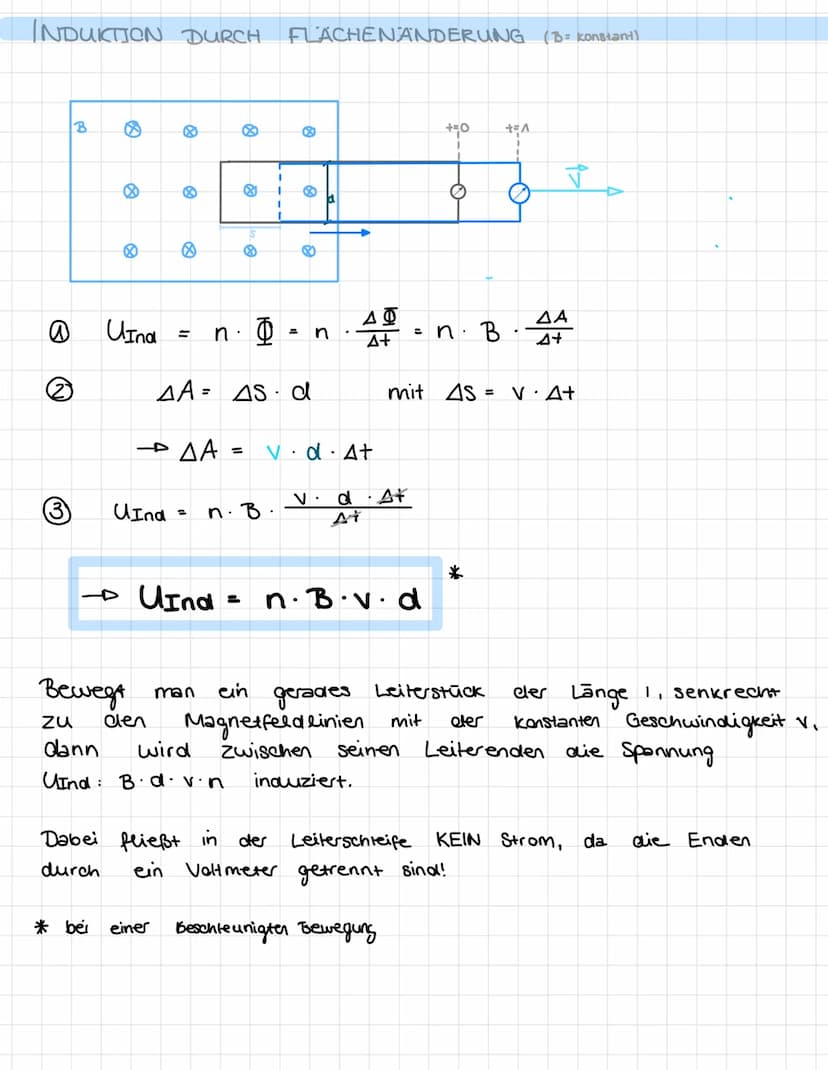 INDUKTION DURCH FLÄCHENÄNDERUNG (B= konstant)
B
t=0 t=1
v
d
s
① UInd = n · Φ = n · ΔΦ/Δt = n · B · ΔA/Δt
② ΔA = ΔS · d mit ΔS = v · Δt
→ ΔA = v · d · Δt
③ UInd = n · B · v · d · Δt/Δt
→ UInd = n · B · v · d *
Bewegt man ein gerades Leiterstück der Länge l, senkrecht
zu den Magnetfeldlinien mit der konstanten Geschwindigkeit v,
dann wird zwischen seinen Leiterenden die Spannung
UInd: B · d · v · n induziert.
Dabei fließt in der Leiterschleife KEIN Strom, da die Enden
durch ein Voltmeter getrennt sind!
* bei einer Beschleunigten Bewegung